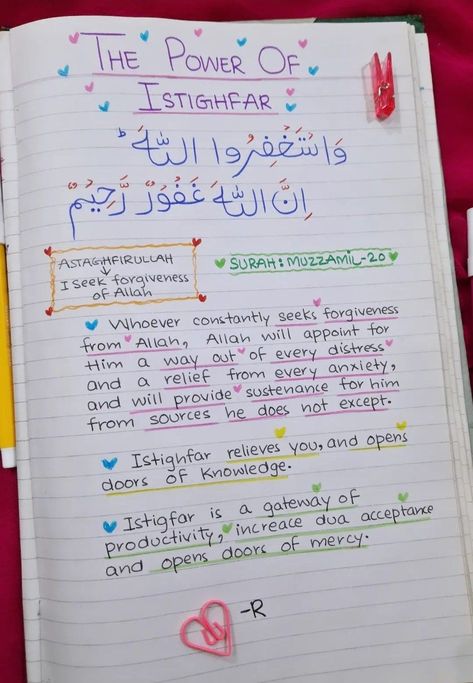 THE POWER OF
ISTIGHFAR
وَاسْتَغْفِرُوا اللَّهَ ۖ
إِنَّ اللَّهَ غَفُورٌ رَّحِيمٌ
ASTAGHFIRULLAH
↓
I seek forgiveness
of Allah
SURAH: MUZZAMIL-20
Whoever constantly seeks forgiveness
from Allah, Allah will appoint for
Him a way out of every distress
and a relief from every anxiety,
and will provide sustenance for him
from sources he does not except.
Istighfar relieves you, and opens
doors of Knowledge.
Istigfar is a gateway of
productivity, increace dua acceptance
and opens doors of mercy.
-R